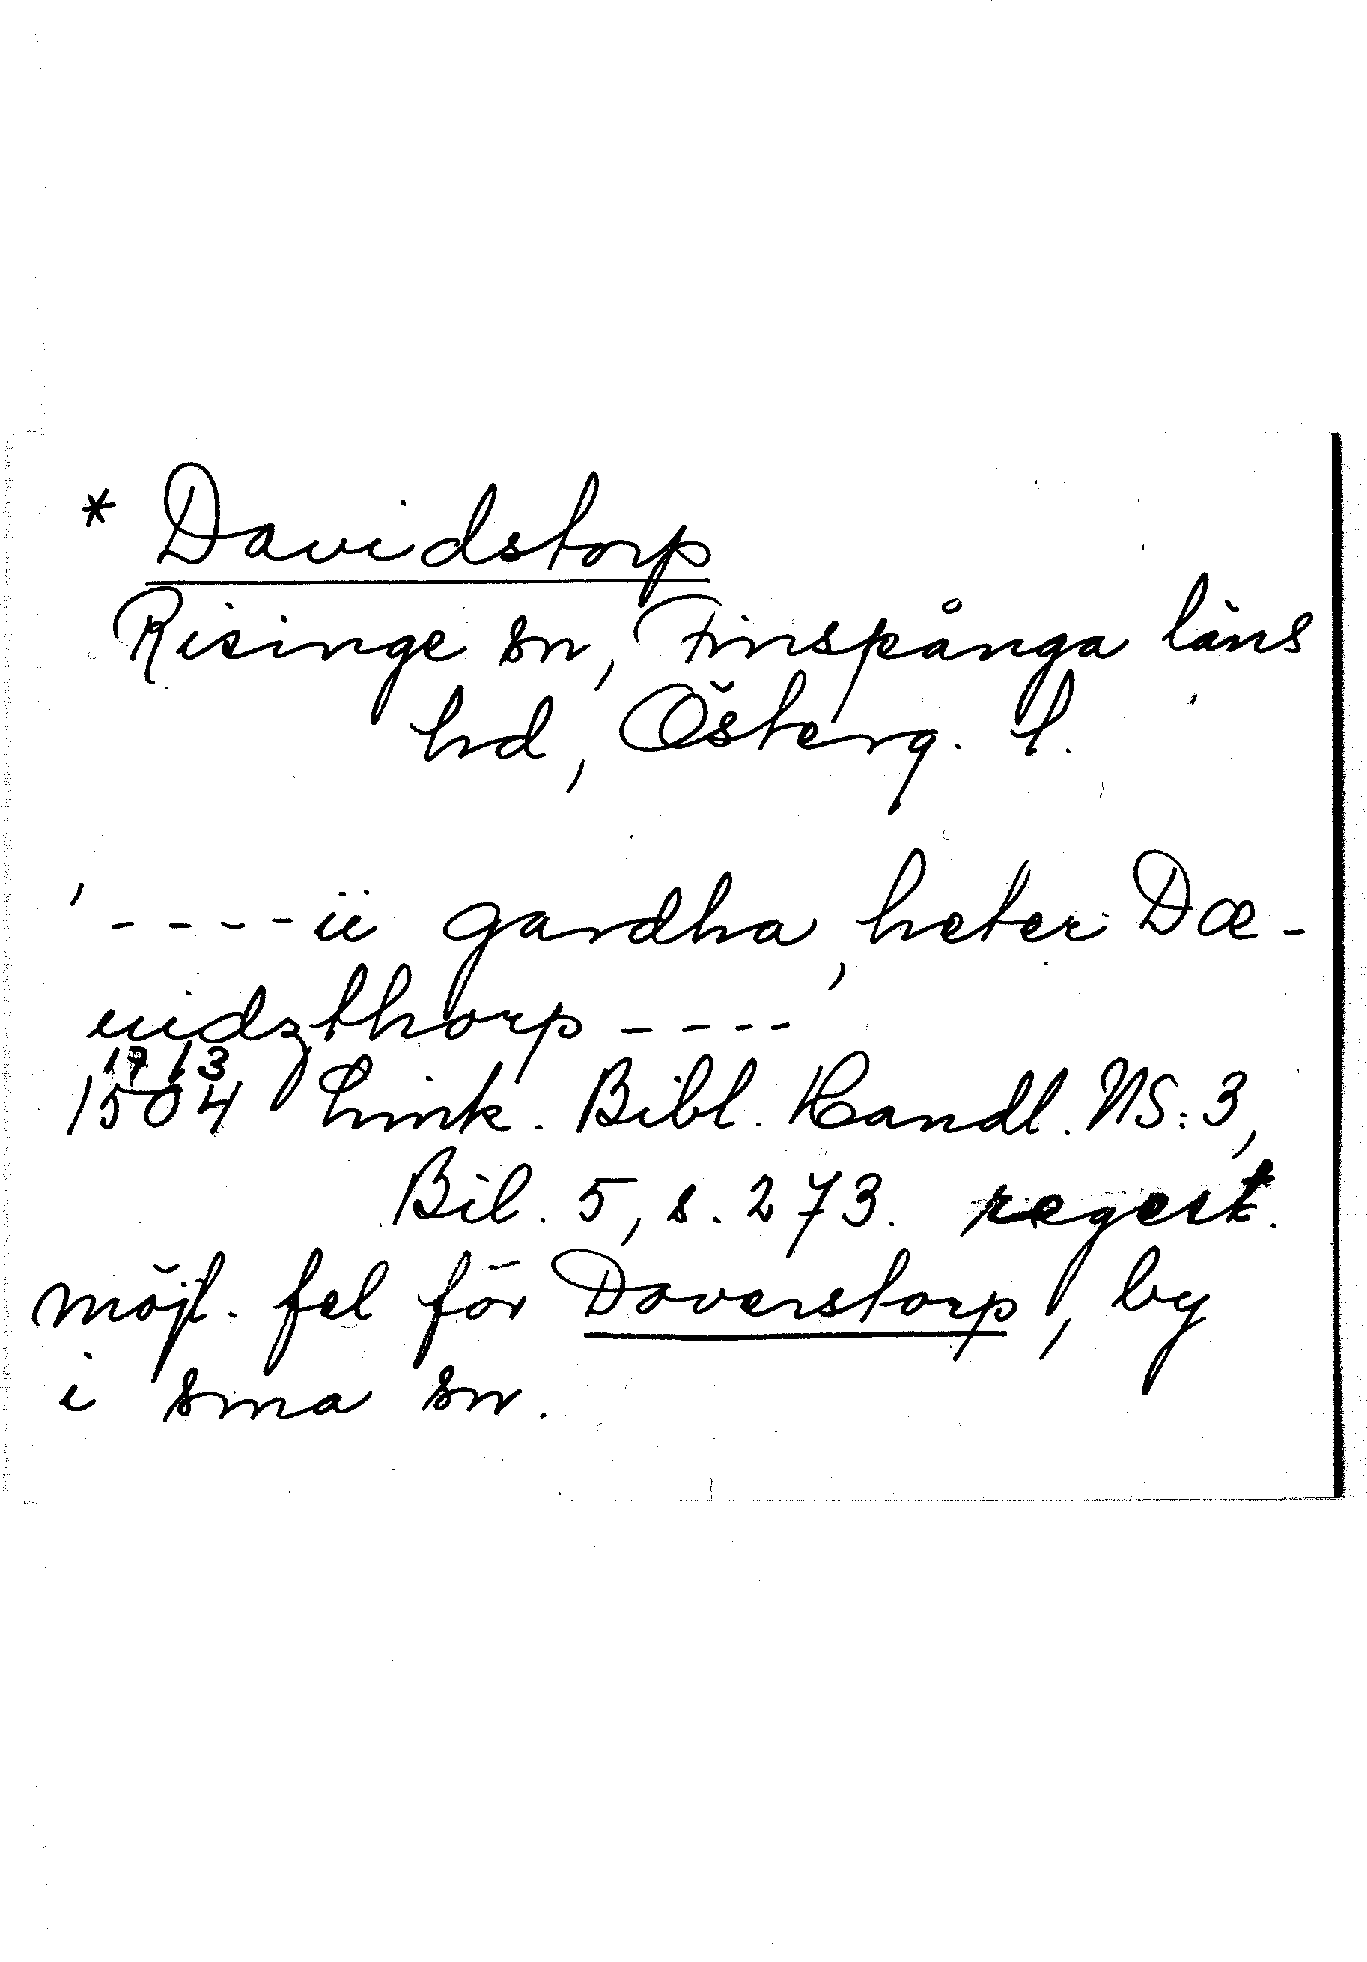 * Davidstorp
Risinge sn, Finspånga läns
hd, Österg. l.
' - - - - ii gardha, heter Dæ-
uidzthorp - - - -
17/3
1504 Link. Bibl. Handl. NS: 3,
Bil. 5, s. 273. regest.
möjl. fel för Doverstorp, by
i sma sn.